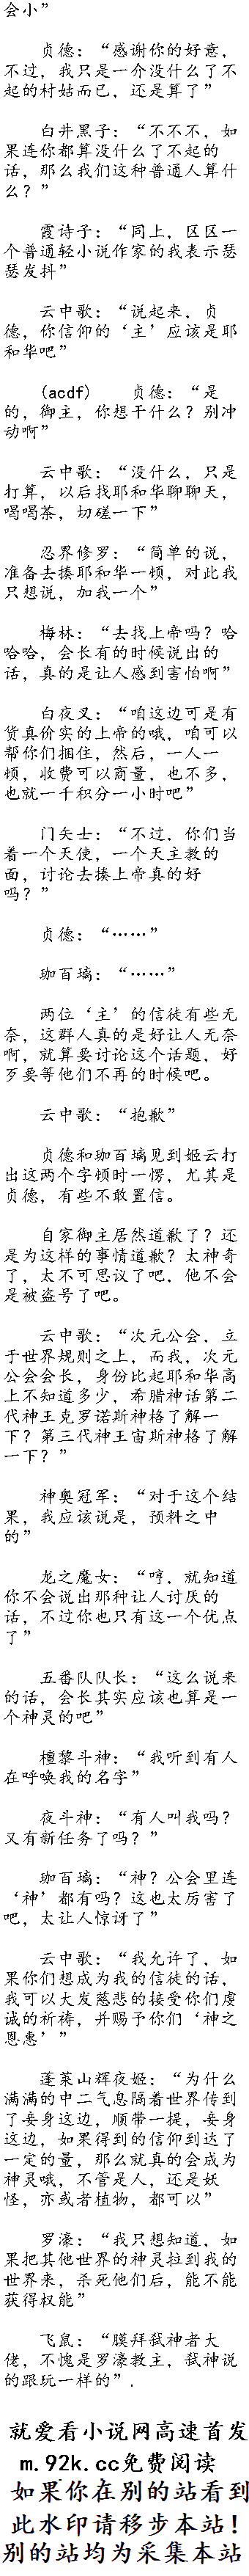 会小”
贞德：“感谢你的好意，
不过，我只是一介没什么了不
起的村姑而已，还是算了”
白井黑子：“不不不，如
果连你都算没什么了不起的
话，那么我们这种普通人算什
么？”
霞诗子：“同上，区区一
个普通轻小说作家的我表示瑟
瑟发抖”
云中歌：“说起来，贞
德，你信仰的‘主’应该是耶
和华吧”
(acdf)　　贞德：“是
的，御主，你想干什么？别冲
动啊”
云中歌：“没什么，只是
打算，以后找耶和华聊聊天，
喝喝茶，切磋一下”
忍界修罗：“简单的说，
准备去揍耶和华一顿，对此我
只想说，加我一个”
梅林：“去找上帝吗？哈
哈哈，会长有的时候说出的
话，真的是让人感到害怕啊”
白夜叉：“咱这边可是有
货真价实的上帝的哦，咱可以
帮你们捆住，然后，一人一
顿，收费可以商量，也不多，
也就一千积分一小时吧”
门矢士：“不过，你们当
着一个天使，一个天主教的
面，讨论去揍上帝真的好
吗？”
贞德：“……”
珈百璃：“……”
两位‘主’的信徒有些无
奈，这群人真的是好让人无奈
啊，就算要讨论这个话题，好
歹要等他们不再的时候吧。
云中歌：“抱歉”
贞德和珈百璃见到姬云打
出这两个字顿时一愣，尤其是
贞德，有些不敢置信。
自家御主居然道歉了？还
是为这样的事情道歉？太神奇
了，太不可思议了吧，他不会
是被盗号了吧。
云中歌：“次元公会，立
于世界规则之上，而我，次元
公会会长，身份比起耶和华高
上不知道多少，希腊神话第二
代神王克罗诺斯神格了解一
下？第三代神王宙斯神格了解
一下？”
神奥冠军：“对于这个结
果，我应该说是，预料之中
的”
龙之魔女：“哼，就知道
你不会说出那种让人讨厌的
话，不过你也只有这一个优点
了”
五番队队长：“这么说来
的话，会长其实应该也算是一
个神灵的吧”
檀黎斗神：“我听到有人
在呼唤我的名字”
夜斗神：“有人叫我吗？
又有新任务了吗？”
珈百璃：“神？公会里连
‘神’都有吗？这也太厉害了
吧，太让人惊讶了”
云中歌：“我允许了，如
果你们想成为我的信徒的话，
我可以大发慈悲的接受你们虔
诚的祈祷，并赐予你们‘神之
恩惠’”
蓬莱山辉夜姬：“为什么
满满的中二气息隔着世界传到
了妾身这边，顺带一提，妾身
这边，如果得到的信仰到达了
一定的量，那么就真的会成为
神灵哦，不管是人，还是妖
怪，亦或者植物，都可以”
罗濠：“我只想知道，如
果把其他世界的神灵拉到我的
世界来，杀死他们后，能不能
获得权能”
飞鼠：“膜拜弑神者大
佬，不愧是罗濠教主，弑神说
的跟玩一样的”.
就爱看小说网高速首发
m.92k.cc免费阅读
如果你在别的站看到
此水印请移步本站！
别的站均为采集本站